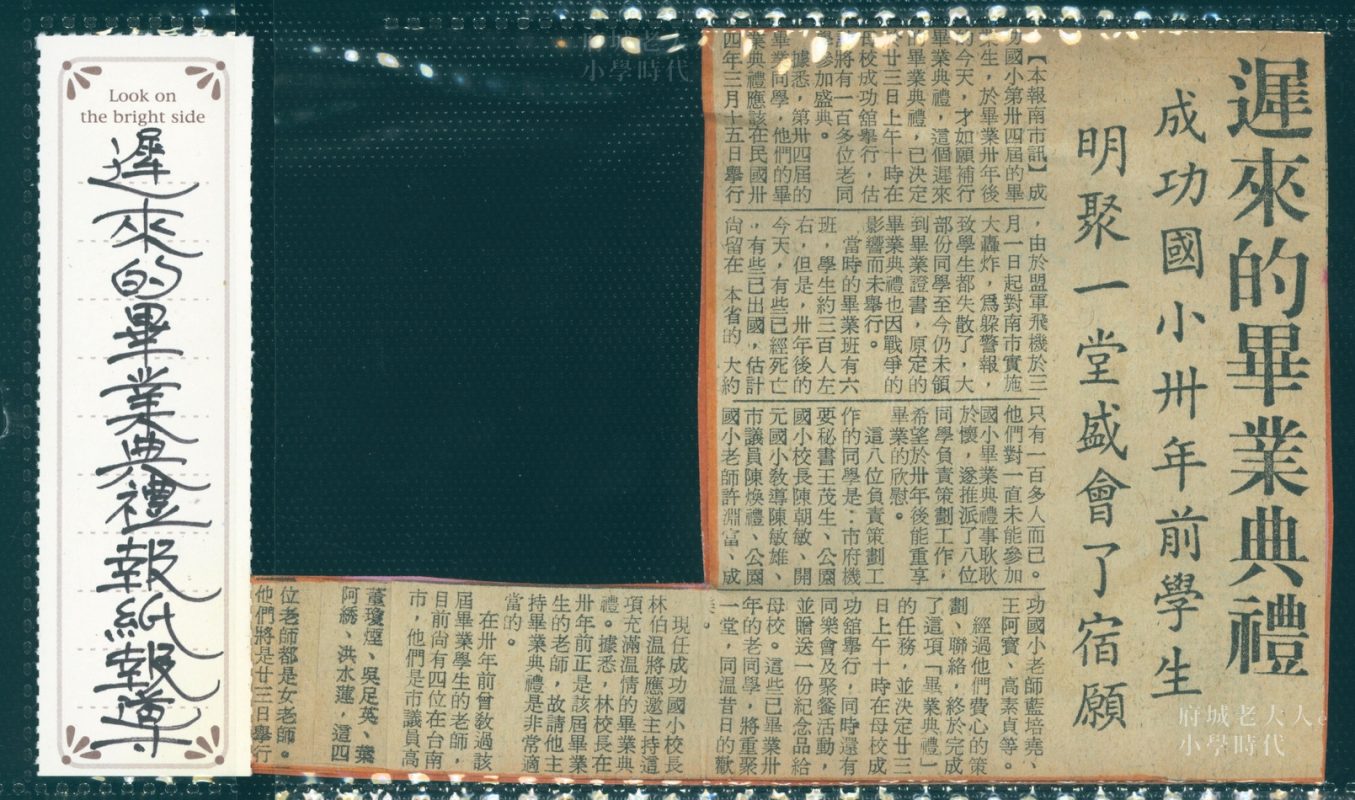 Look on
the bright side
遲來的畢業典禮報紙報導
遲來的畢業典禮
成功國小卅年前學生
明聚一堂盛會了宿願
【本報南市訊】成
功國小第卅四屆的畢
業生，於畢業卅年後
的今天，才如願補行
畢業典禮，這個遲來
的畢業典禮，已決定
於廿三日上午十時在
母校成功舘舉行，估
將有一百多位老同
學參加盛典。
據悉，第卅四屆的
畢業同學，他們的畢
業典禮應該在民國卅
四年三月十五日舉行
，由於盟軍飛機於三
月一日起對南市實施
大轟炸，爲躲警報，
致學生都失散了，大
部份同學至今仍未領
到畢業證書，原定的
畢業典禮也因戰爭的
影響而未舉行。
當時的畢業班有六
班，學生約三百人左
右，但是，卅年後的
今天，有些已經死亡
，有些已出國，估計
尙留在 本省的 大約
只有一百多人而已。
他們對一直未能參加
國小畢業典禮事耿耿
於懷，遂推派了八位
同學負責策劃工作，
希望於卅年後能重享
畢業的欣慰。
這八位負責策劃工
作的同學是：市府機
要秘書王茂生、公園
國小校長陳朝敏、開
元國小敎導陳敏雄、
市議員陳煥禮、公園
國小老師許淵富、成
功國小老師藍培堯、
王阿寳、高素貞等。
經過他們費心的策
劃、聯絡，終於完成
了這項「畢業典禮」
的任務，並決定廿三
日上午十時在母校成
功舘舉行，同時還有
同樂會及聚餐活動，
並贈送一份紀念品給
母校。這些已畢業卅
年的老同學，將重聚
一堂，同溫昔日的歡
。
現任成功國小校長
林伯溫將應邀主持這
項充滿溫情的畢業典
禮。據悉，林校長在
卅年前正是該屆畢業
生的老師，故請他主
持畢業典禮是非常適
當的。
在卅年前曾敎過該
屆畢業學生的老師，
目前尙有四位在台南
市，他們是市議員高
董瓊煙、吳足英、葉
阿綉、洪水蓮，這四
位老師都是女老師。
他們將是廿三日舉行
府城老大人
小學時代
小學時代